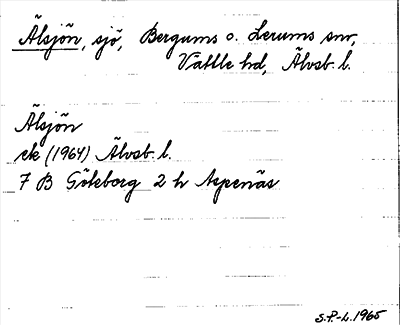 Älsjön, sjö, Bergums o. Lerums snr,
Vättle hd, Älvsb. l.
Älsjön
ek (1964) Älvsb. l.
7 B Göteborg 2 h Aspenäs
S.P.-L. 1965